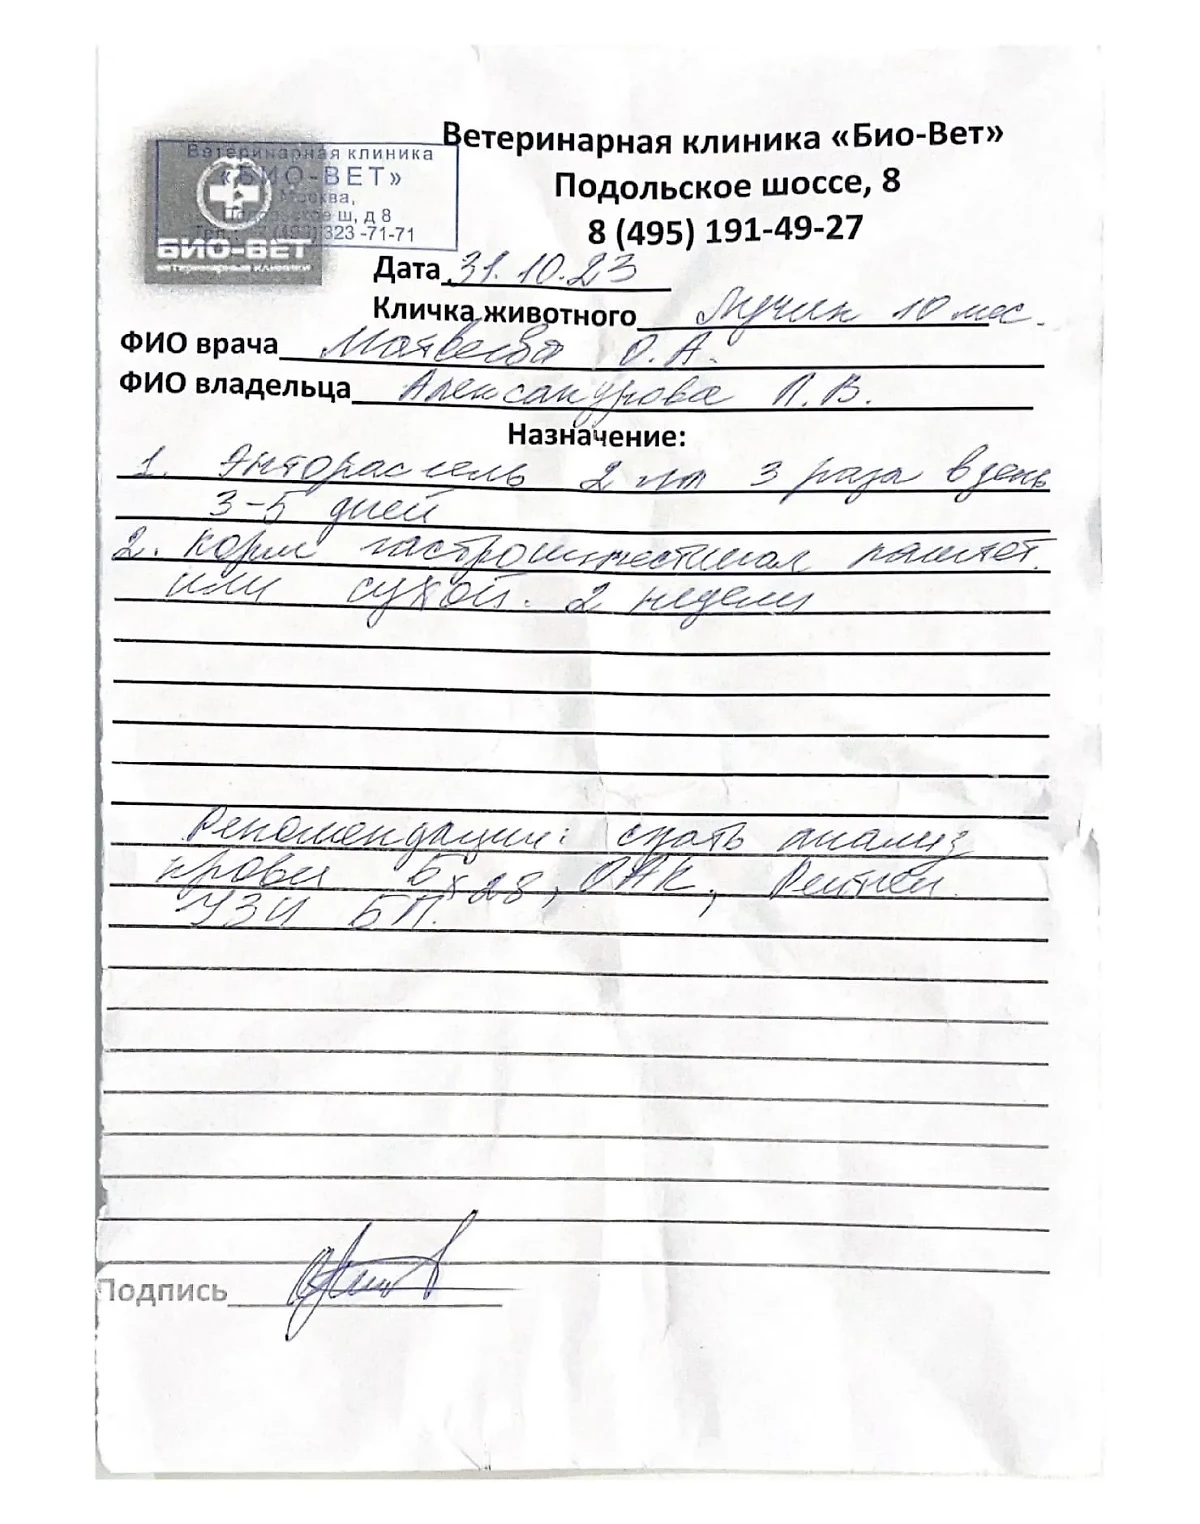 Ветеринарная клиника «Био-Вет»
Подольское шоссе, 8
8 (495) 191-49-27
Ветеринарная клиника
«БИО-ВЕТ»
Москва,
Подольское ш, д 8
323 -71-71
БИО-ВЕТ
ветеринарные клиники
Дата 31.10.23
Кличка животного 10 мес.
ФИО врача Матвеева О.А.
ФИО владельца Александрова П.В.
Назначение:
1. 2 мл 3 раза в день
3-5 дней
2. Корм гастроинтестинал паштет.
или сухой. 2 недели
Рекомендации: сдать анализ
крови Бх28, ОАК,
УЗИ БП.
Подпись